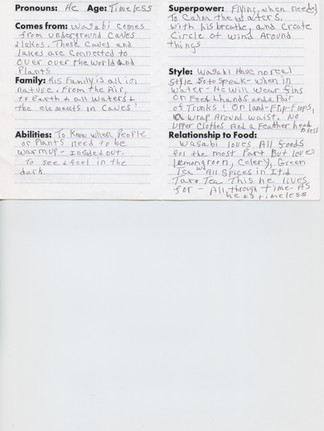 Pronouns: He Age: Timeless
Comes from: Wasabi comes
from underground Caves
Lakes. These Caves and
Lakes are Connected to
Over over the World and
Plants
Family: His Family is all in
nature. From the Air,
to Earth & all Waters &
the elements in Caves
Abilities: To Know when People
or Plants need to be
warmup - Inside & out.
To see & feel in the
dark.
Superpower: Flying, when needs,
To Calm the waters,
With his breathe, and Create
Circle of wind Around
things
Style: Wasabi Have no real
Style so to speak - when in
Water - He will wear fins
On Feet & hands and a Pair
of Trunks! On land - Flip-Flops,
a wrap Around waist. No
upper Clothes And a Feather head
Dress
Relationship to Food:
Wasabi loves All foods
for the most Part But loves
Lemongreen, Celery, Green
Tea All Spices in It &
Taro Tea This he lives
for - All through time - As
he is timeless